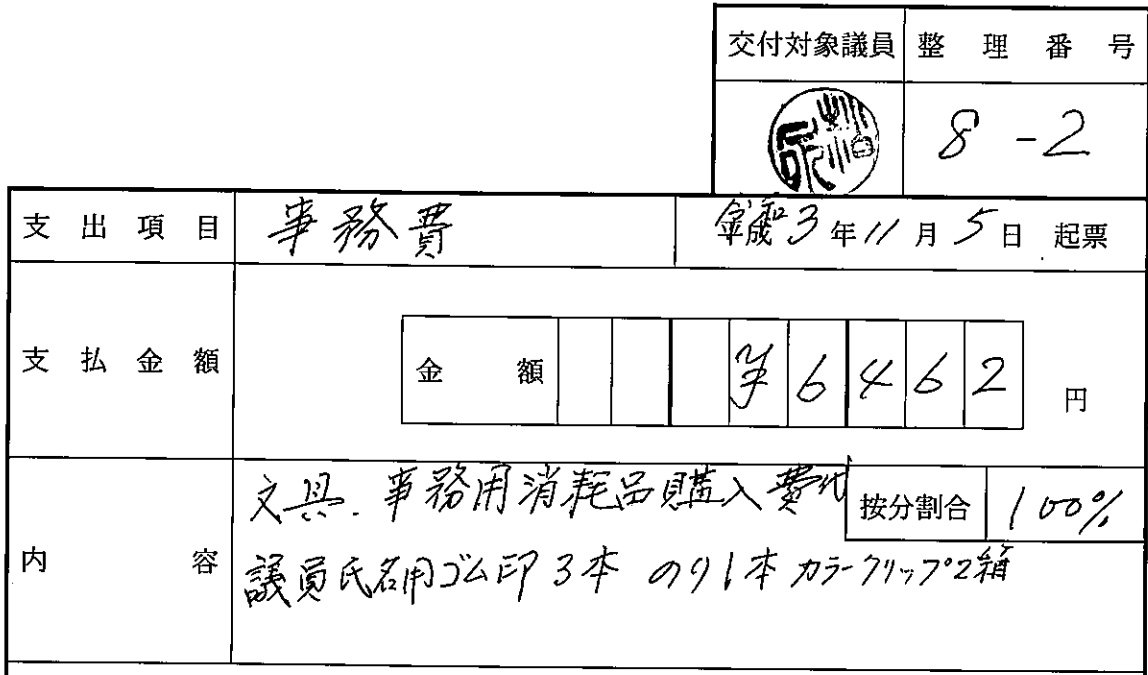 交付対象議員 整理番号
8-2
支出項目 事務費 令和3年11月5日 起票
支払金額 金額 ¥6462 円
文具、事務用消耗品購入費代 按分割合 100%
内容 議員氏名用ゴム印3本 のり1本 カラークリップ2箱